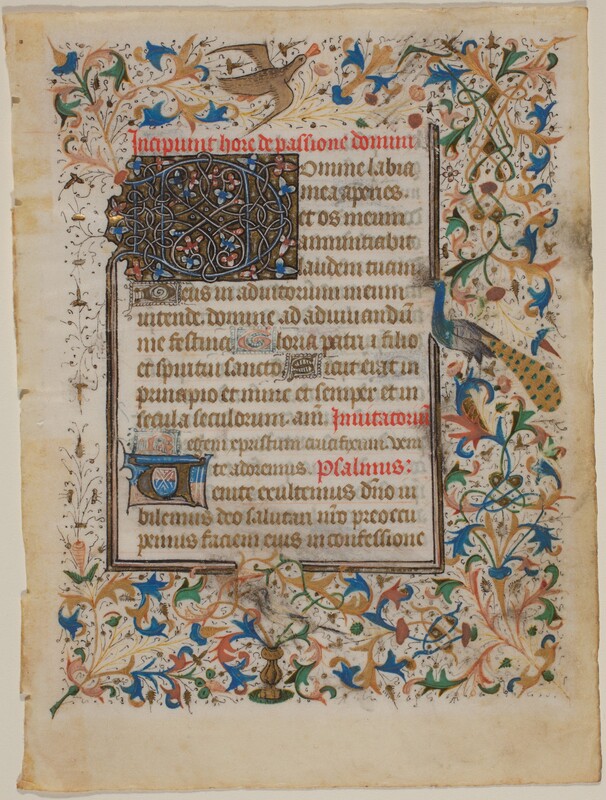 Incipiunt hore de passione domini
Domine labia
mea aperies.
et os meum
annunciabit
laudem tuam
Deus in adiutorium meum
intende. domine ad adiuuandū
me festina. Gloria patri i filio
et spiritui sancto Sicut erat in
principio et nunc et semper et in
secula seculorum. am̄. Inuitatoriū
Regem xpristum crucifixum. veni
te adoremus. Psalmus:
Uenite exultemus dn̄o iu
bilemus deo salutari nr̄o preoccu
pemus faciem eius in confessione